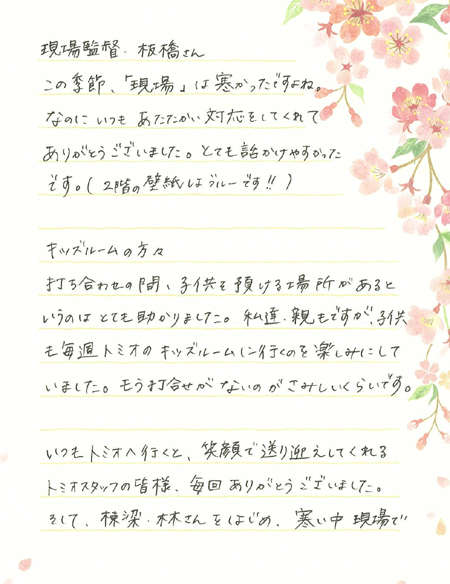 現場監督・板橋さん
この季節、「現場」は寒かったですよね。
なのに いつも あたたかい対応をしてくれて
ありがとうございました。とても話かけやすかった
です。(2階の壁紙はブルーです!!)
キッズルームの方々
打ち合わせの間、子供を預ける場所があると
いうのは とても助かりました。私達・親もですが、子供
も毎週トミオの キッズルームに行くのを楽しみにして
いました。もう打合せがないのが さみしいくらいです。
いつもトミオへ行くと、笑顔で送り迎えしてくれる
トミオスタッフの皆様、毎回ありがとうございました。
そして、棟梁・林さんをはじめ、寒い中 現場で